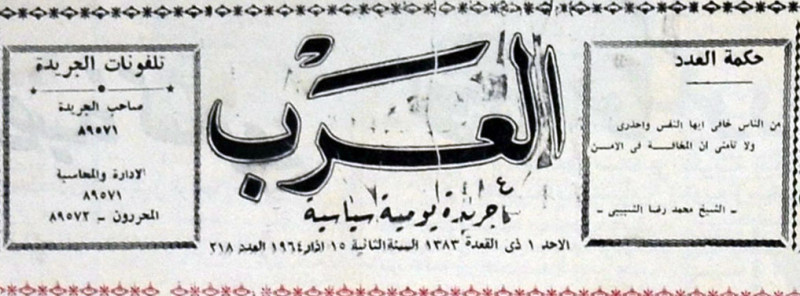 حكمة العدد
من الناس خافى ايها النفس واحذرى
ولا تأمنى ان المخافة فى الامن
ـ الشيخ محمد رضا الشبيبى ـ
العَرَب
جريدة يومية سياسية
الاحد ١ ذى القعدة ١٣٨٣ السنة الثانية ١٥ اذار ١٩٦٤ العدد ٢١٨
تلفونات الجريدة
صاحب الجريدة
٨٩٥٧١
الادارة والمحاسبة
٨٩٥٧١
المحررون ـ ٨٩٥٧٢